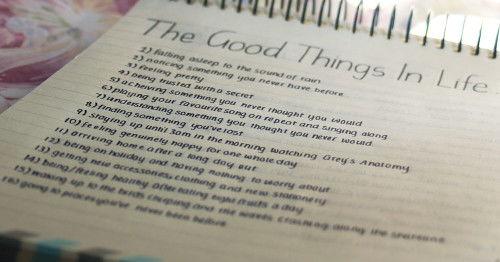 The Good Things In Life
1) falling asleep to the sound of rain
2) noticing something you never have before
3) feeling pretty
4) being trusted with a secret
5) achieving something you never thought you would
6) playing your favourite song on repeat and singing along
7) understanding something you thought you never would
8) finding something you've lost
9) staying up until 3am in the morning watching Grey's Anatomy
10) feeling genuinely happy for one whole day
11) arriving home after a long day out
12) being on holiday and having nothing to worry about
13) getting new accessories, clothing and new stationery
14) being/feeling healthy after eating eight fruits a day
15) waking up to the birds chirping and the waves crashing along the shoreline
16) going to places you've never been before